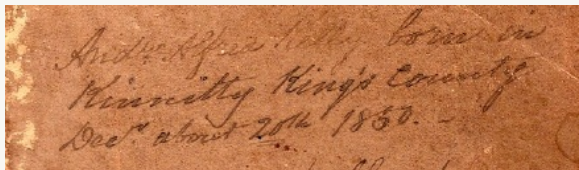 Andw Alfred Kelly born in
Kinnitty King's County
Decr about 20th 1850. -